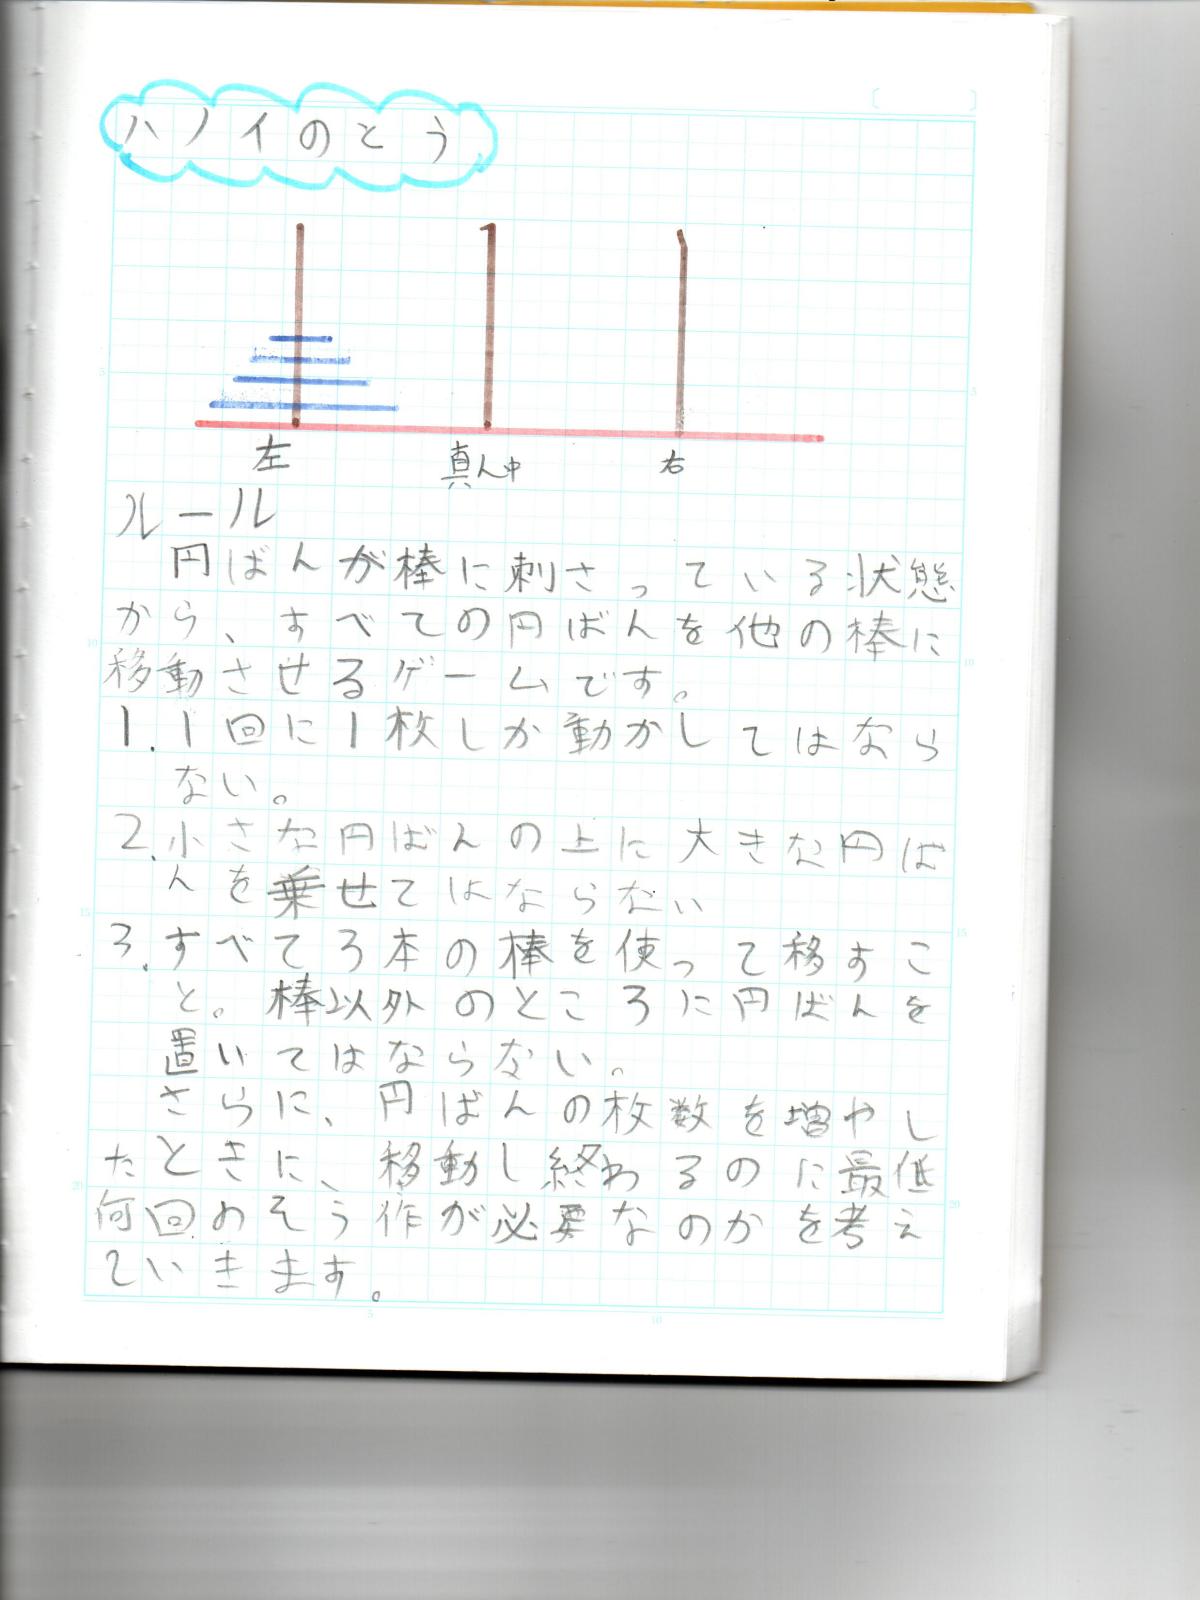 ハノイのとう
左 真ん中 右
ルール
円ばんが棒に刺さっている状態
から、すべての円ばんを他の棒に
移動させるゲームです。
1.1回に1枚しか動かしてはなら
ない。
2.小さな円ばんの上に大きな円ば
んを乗せてはならない
3.すべて3本の棒を使って移すこ
と。棒以外のところに円ばんを
置いてはならない。
さらに、円ばんの枚数を増やし
たときに、移動し終わるのに最低
何回のそう作が必要なのかを考え
ていきます。
5
10
15
20
5
10
15
20
5
10